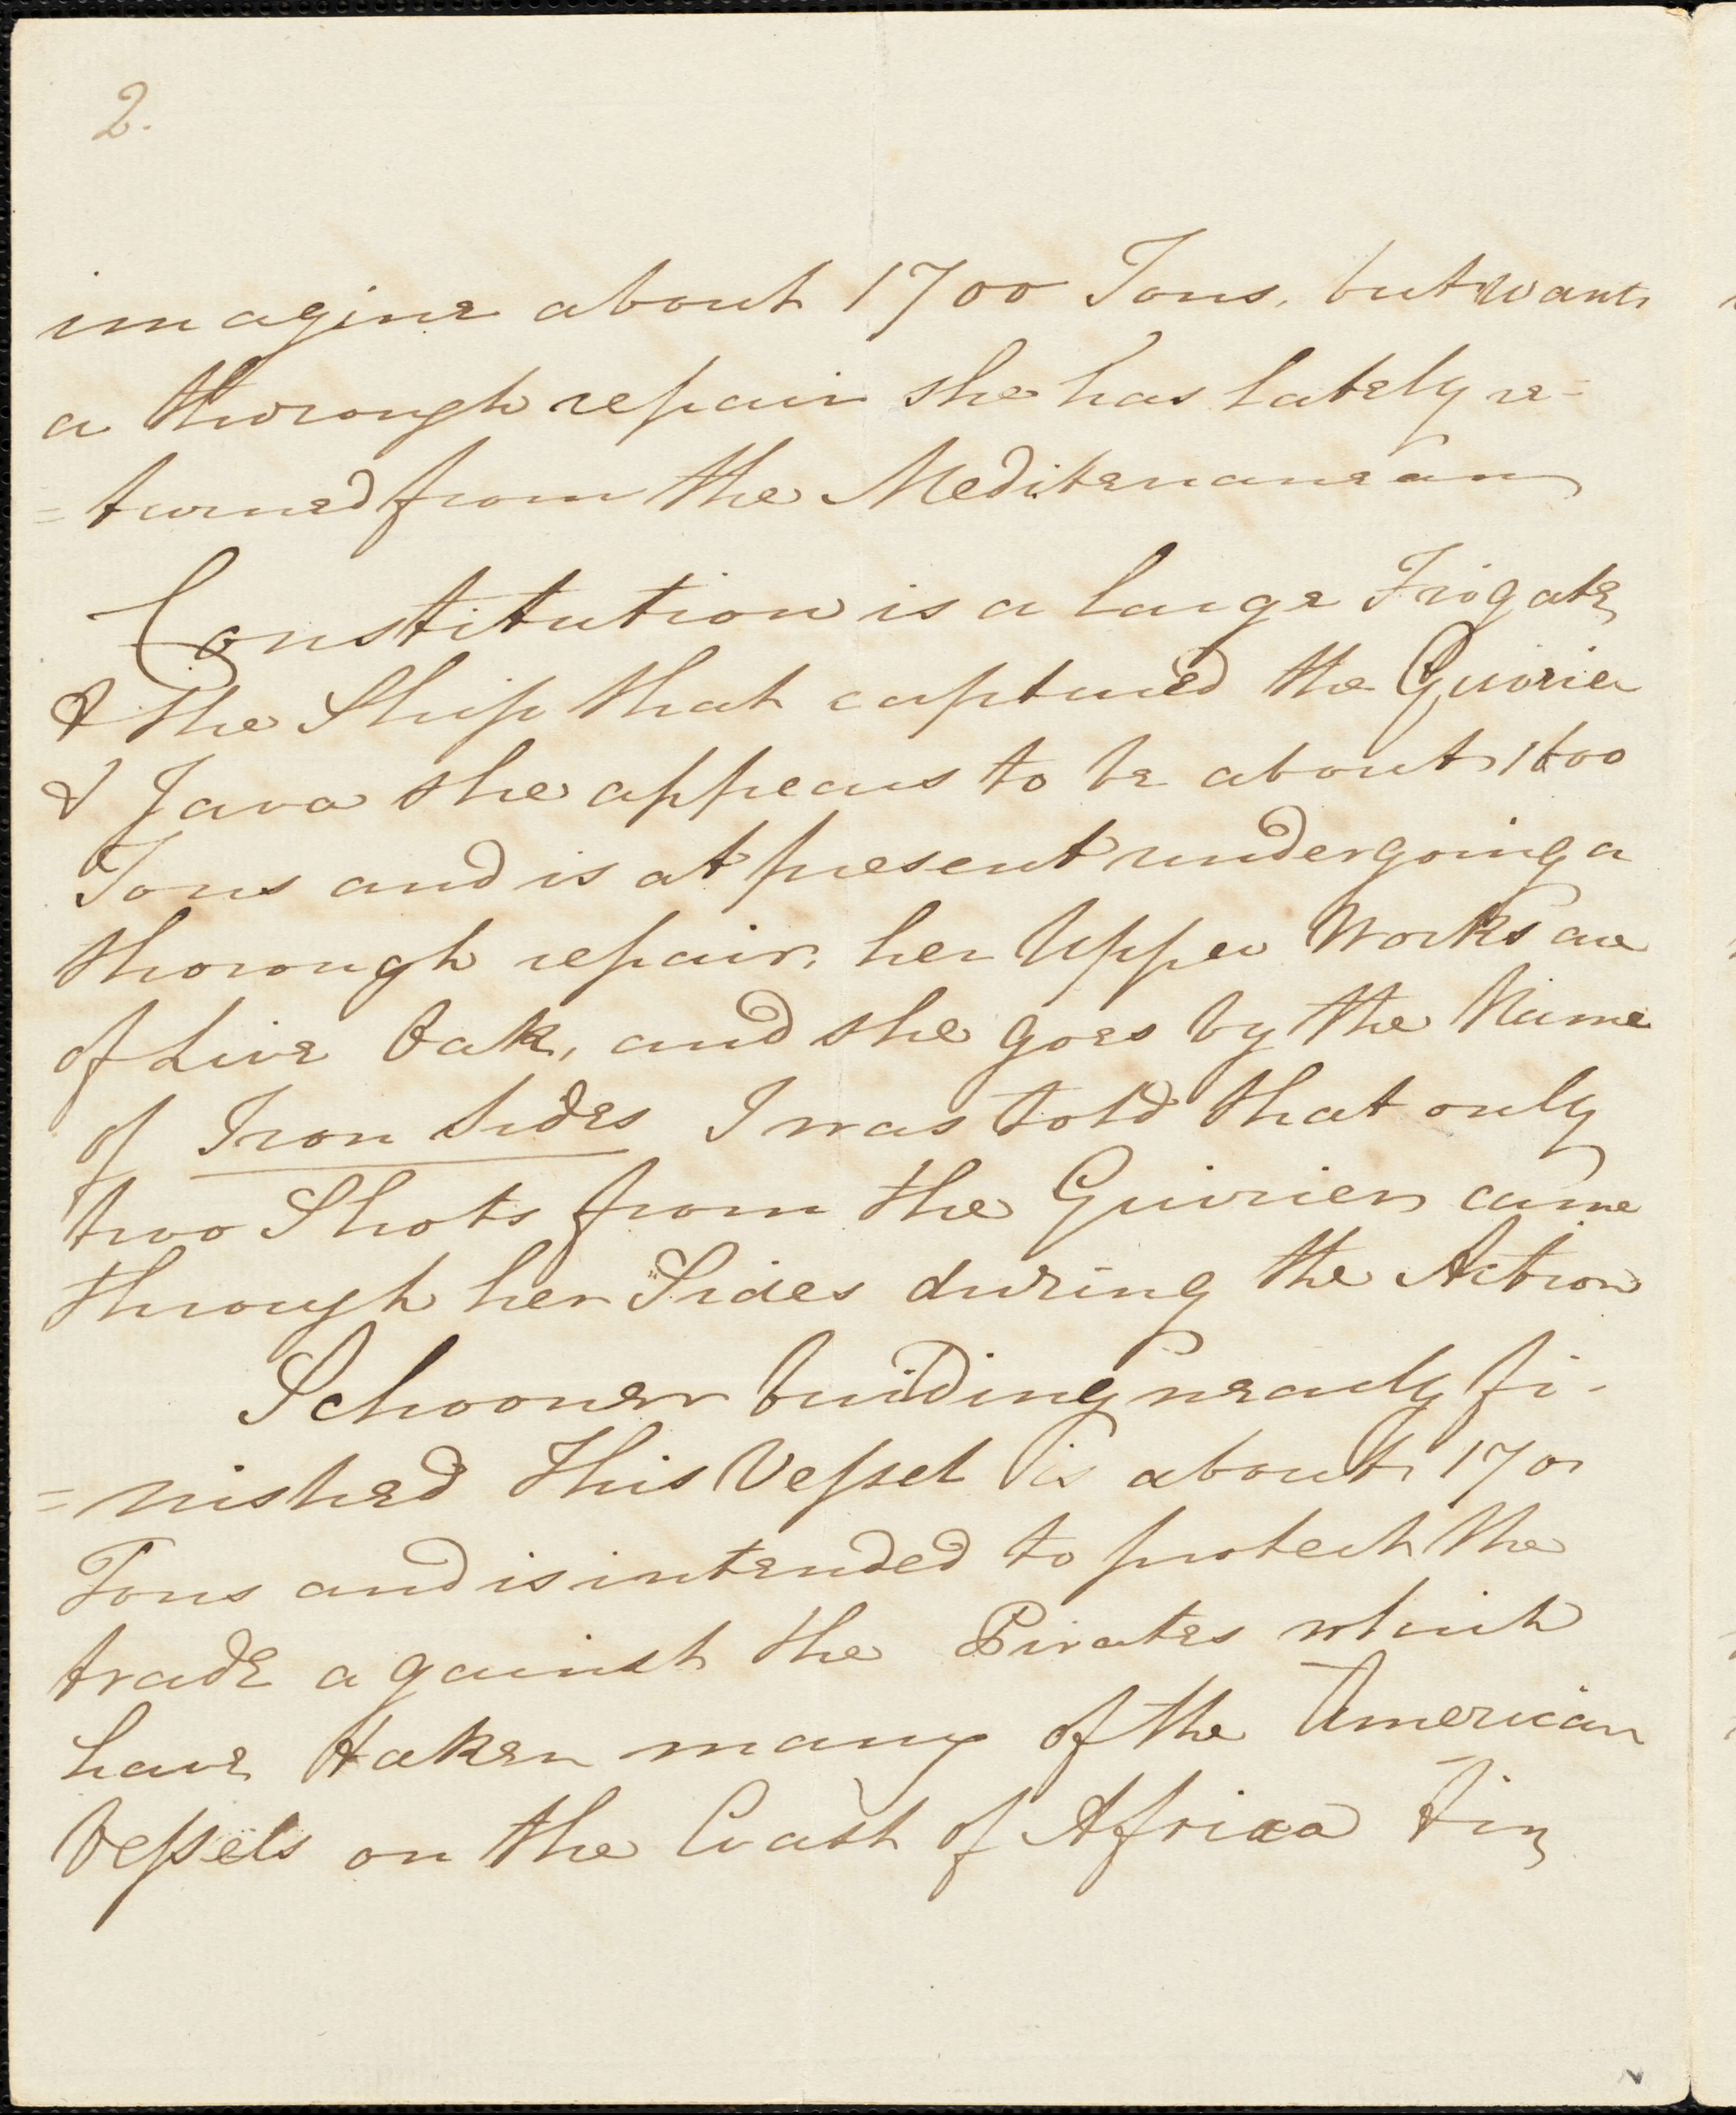 2.
imagine about 1700 Tons, but wants
a thorough repair she has lately re=
=turned from the Mediteranean
Constitution is a large Frigate
& the Ship that captured the Guirier
& Java she appears to be about 1600
Tons and is at present undergoing a
thorough repair, her Upper Works are
of Live Oak, and she goes by the Name
of Iron Sides I was told that only
two Shots from the Guirier came
through her Sides during the Action
Schooner building nearly fi-
=nished This Vessel is about 170
Tons and is intended to protect the
trade against the Pirates which
have taken many of the American
Vessels on the Coast of Africa